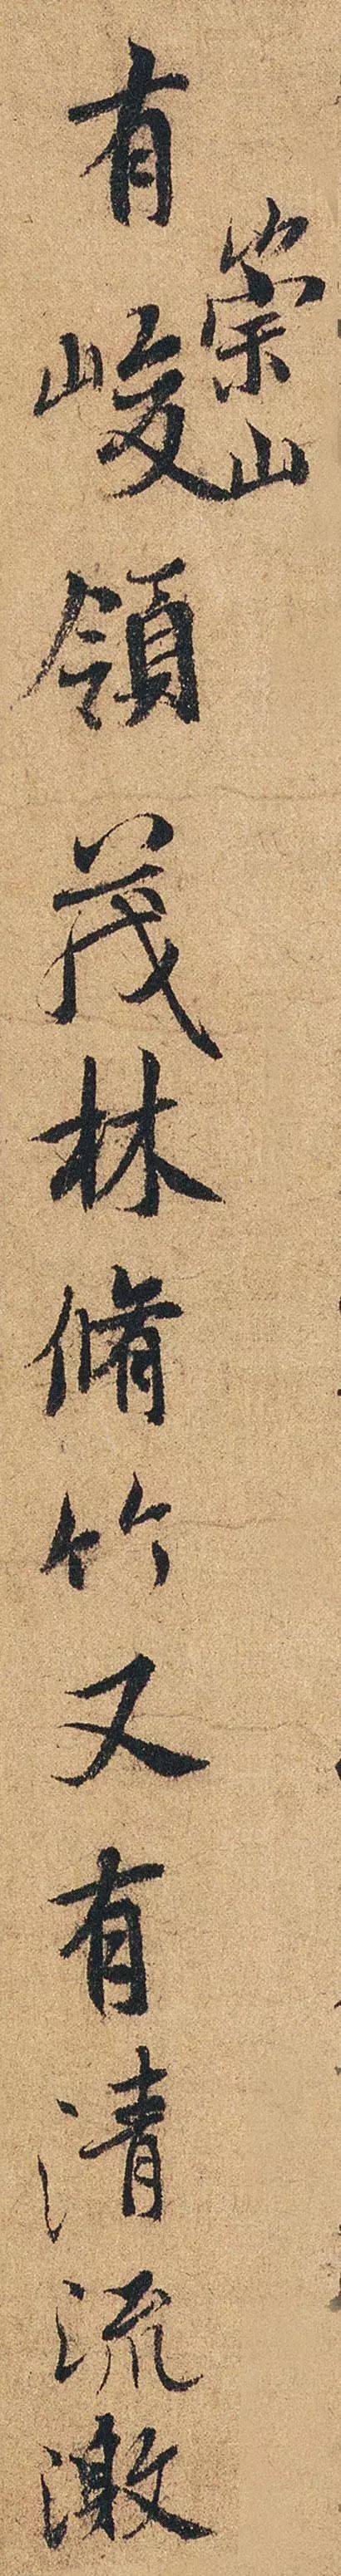 有峻領茂林脩竹又有清流激
崇山